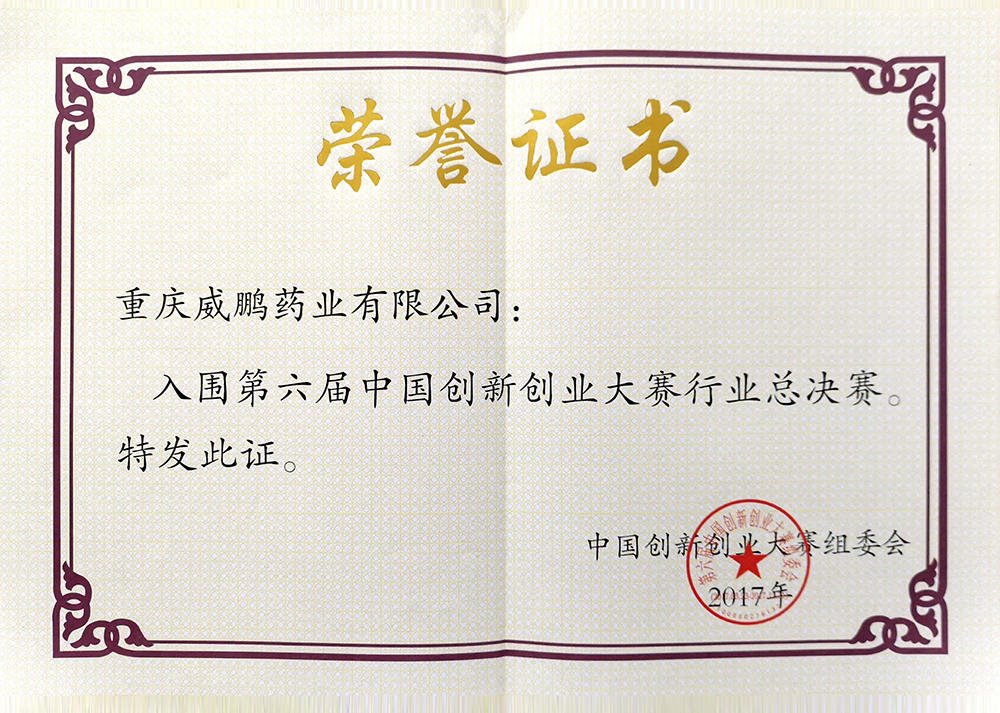 荣誉证书
重庆威鹏药业有限公司：
入围第六届中国创新创业大赛行业总决赛。
特发此证。
中国创新创业大赛组委会
2017年
第六届中国创新创业大赛组委会